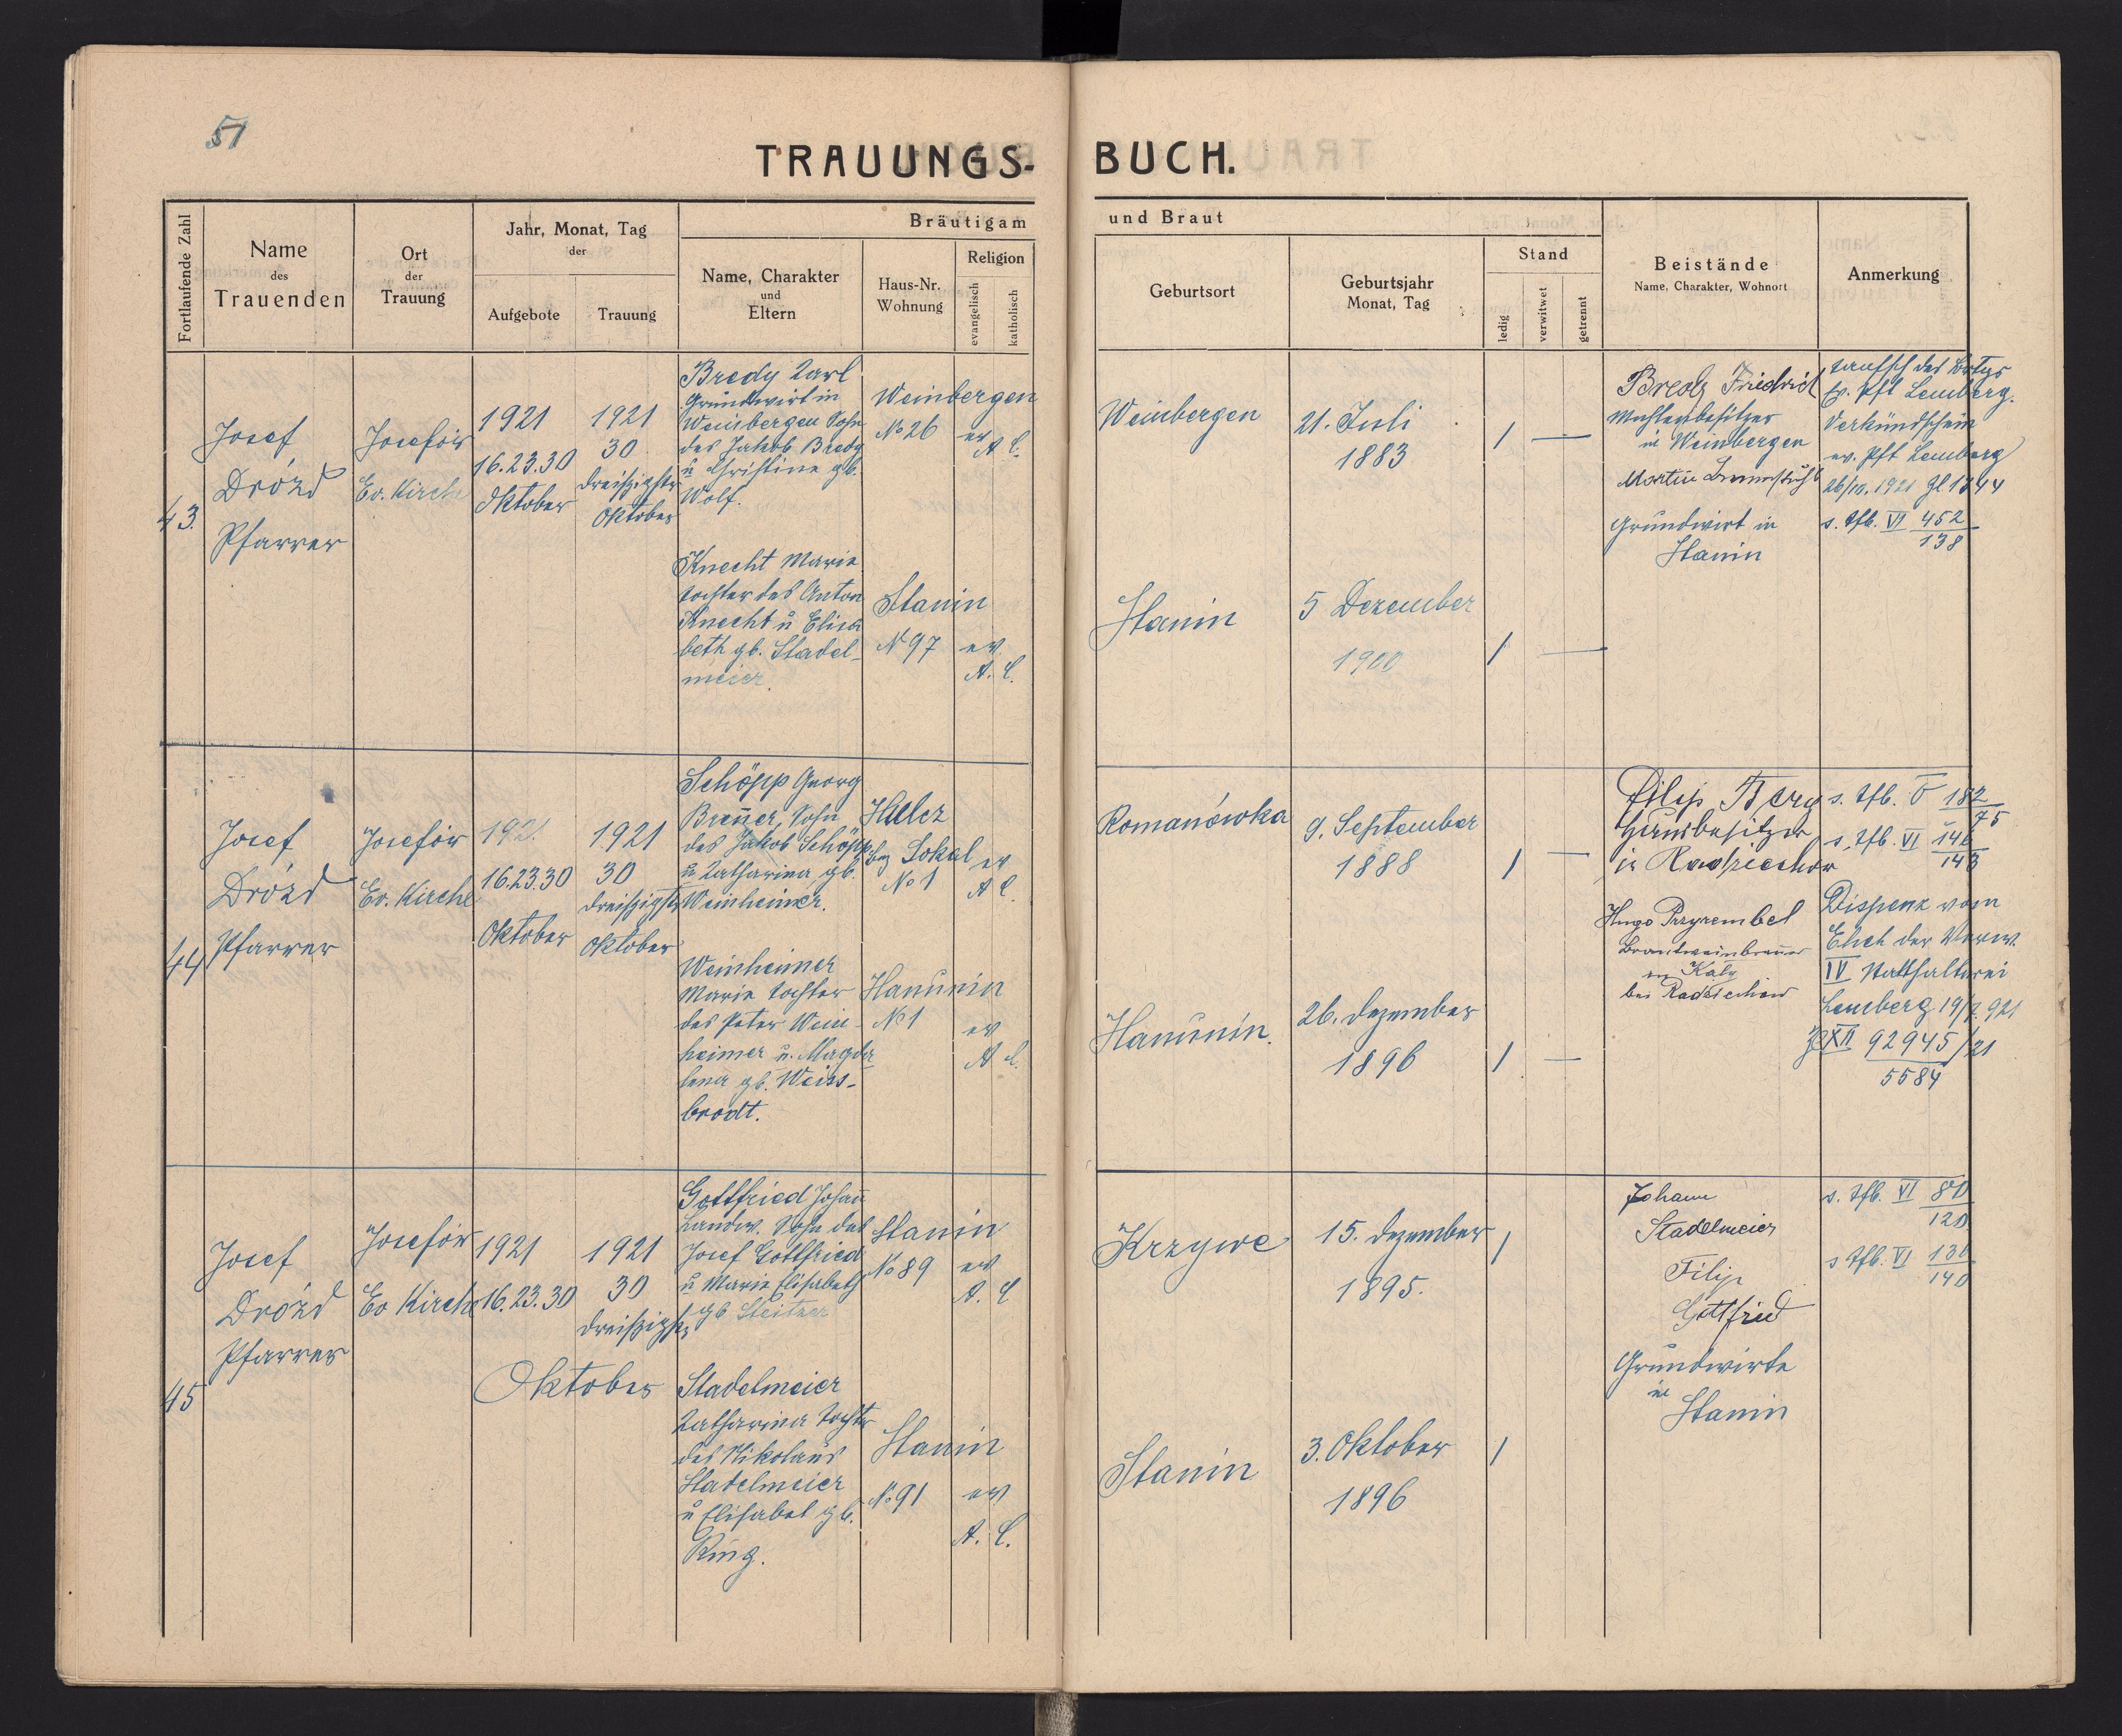 51
TRAUUNGS-BUCH.
Fortlaufende Zahl
Name
des
Trauenden
Ort
der
Trauung
Jahr, Monat, Tag
der
Aufgebote
Trauung
Bräutigam
und Braut
Name, Charakter
und
Eltern
Haus-Nr.
Wohnung
Religion
evangelisch
katholisch
Geburtsort
Geburtsjahr
Monat, Tag
Stand
ledig
verwitwet
getrennt
Beistände
Name, Charakter, Wohnort
Anmerkung
43.
Josef
Drózd
Pfarrer
Josefów
Ev. Kirche
1921
16.23.30
Oktober
1921
30
dreißigster
Oktober
Bredy Karl
Grundwirt in
Weinbergen Sohn
des Jakob Bredy
u Christine gb.
Wolf.
Weinbergen
No 26
ev
A. C.
Weinbergen
21. Juli
1883
/
Bredy Friedrich
in Weinbergen
Martin
Grundwirt in
Stanin
Ev. Pft Lemberg.
Verkündschein
ev. Pft Lemberg
26/10. 1921 Zl 1344
s. Tfb. VI 452
138
Knecht Marie
Tochter des Anton
Knecht u Elisa
beth gb. Stadel-
meier.
Stanin
No 97
ev.
A. C.
Stanin
5 Dezember
1900
/
44
Josef
Drózd
Pfarrer
Josefów
Ev. Kirche
1921
16.23.30
Oktober
1921
30
dreißigster
Oktober
Schöpp Georg
Brenner, Sohn
des Jakob Schöpp
u Katharina gb.
Weinheimer.
Hulcz
bez Sokal
No 1
ev
A C.
Romanówka
9. September
1888
/
Filip Berg
Hausbesitzer
in Radziechow
Hugo Przyrembel
Brantweinbrenner
bei Radziechow
s. Tfb. V 182
75
s. Tfb. VI 146
143
Dispenz vom
Eheh der Verw.
IV Statthalterei
Lemberg 19/7. 921
Zl XII 92945/21
5584
Weinheimer
Marie Tochter
des Peter Wein-
heimer u. Magda
lena gb. Weiss-
brodt.
Hanunin
No 1
ev
A C.
Hanunin.
26. Dezember
1896
/
45
Josef
Drózd
Pfarrer
Josefów
Ev Kirche
1921
16.23.30
1921
30
dreißigster
Oktober
Gottfried Johann
Landw. Sohn des
Josef Gottfried
u Marie Elisabeth
gb Steitzer
Stanin
No 89
ev
A. C
Krzywe
15. Dezember
1895.
/
Johann
Stadelmeier
Filip
Gottfried
Grundwirte
in
Stanin
s. Tfb. VI 80
120
s Tfb. VI 130
140
Stadelmeier
Katharina Tochter
des Nikolaus
Stadelmeier
u Elisabet gb.
Ring.
Stanin
No 91
ev
A. C.
Stanin
3. Oktober
1896
/